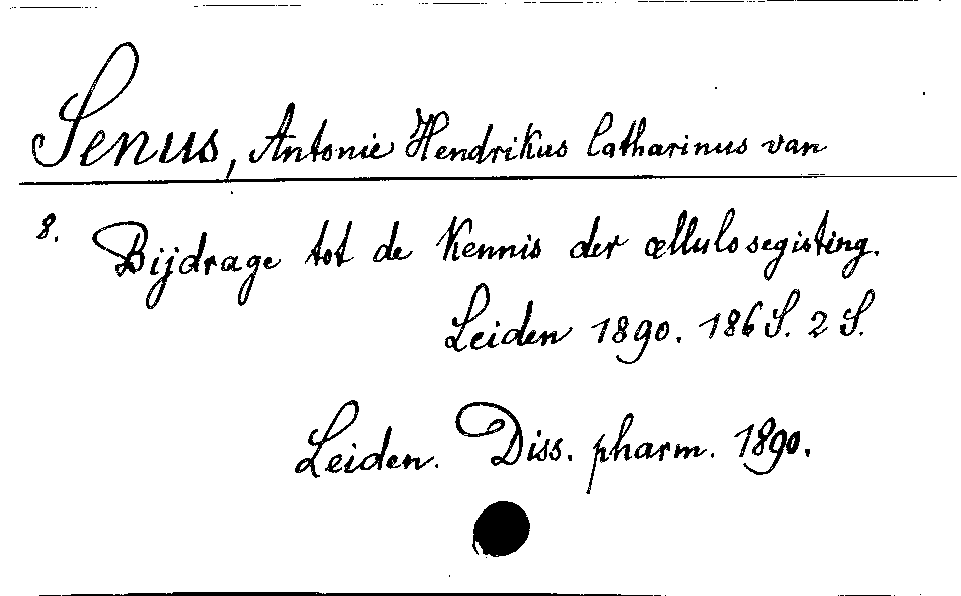 Senus, Antonie Hendrikus Catharinus van
8. Bijdrage tot de Kennis der cellulosegisting.
Leiden 1890. 186 S. 2 S.
Leiden. Diss. pharm. 1890.